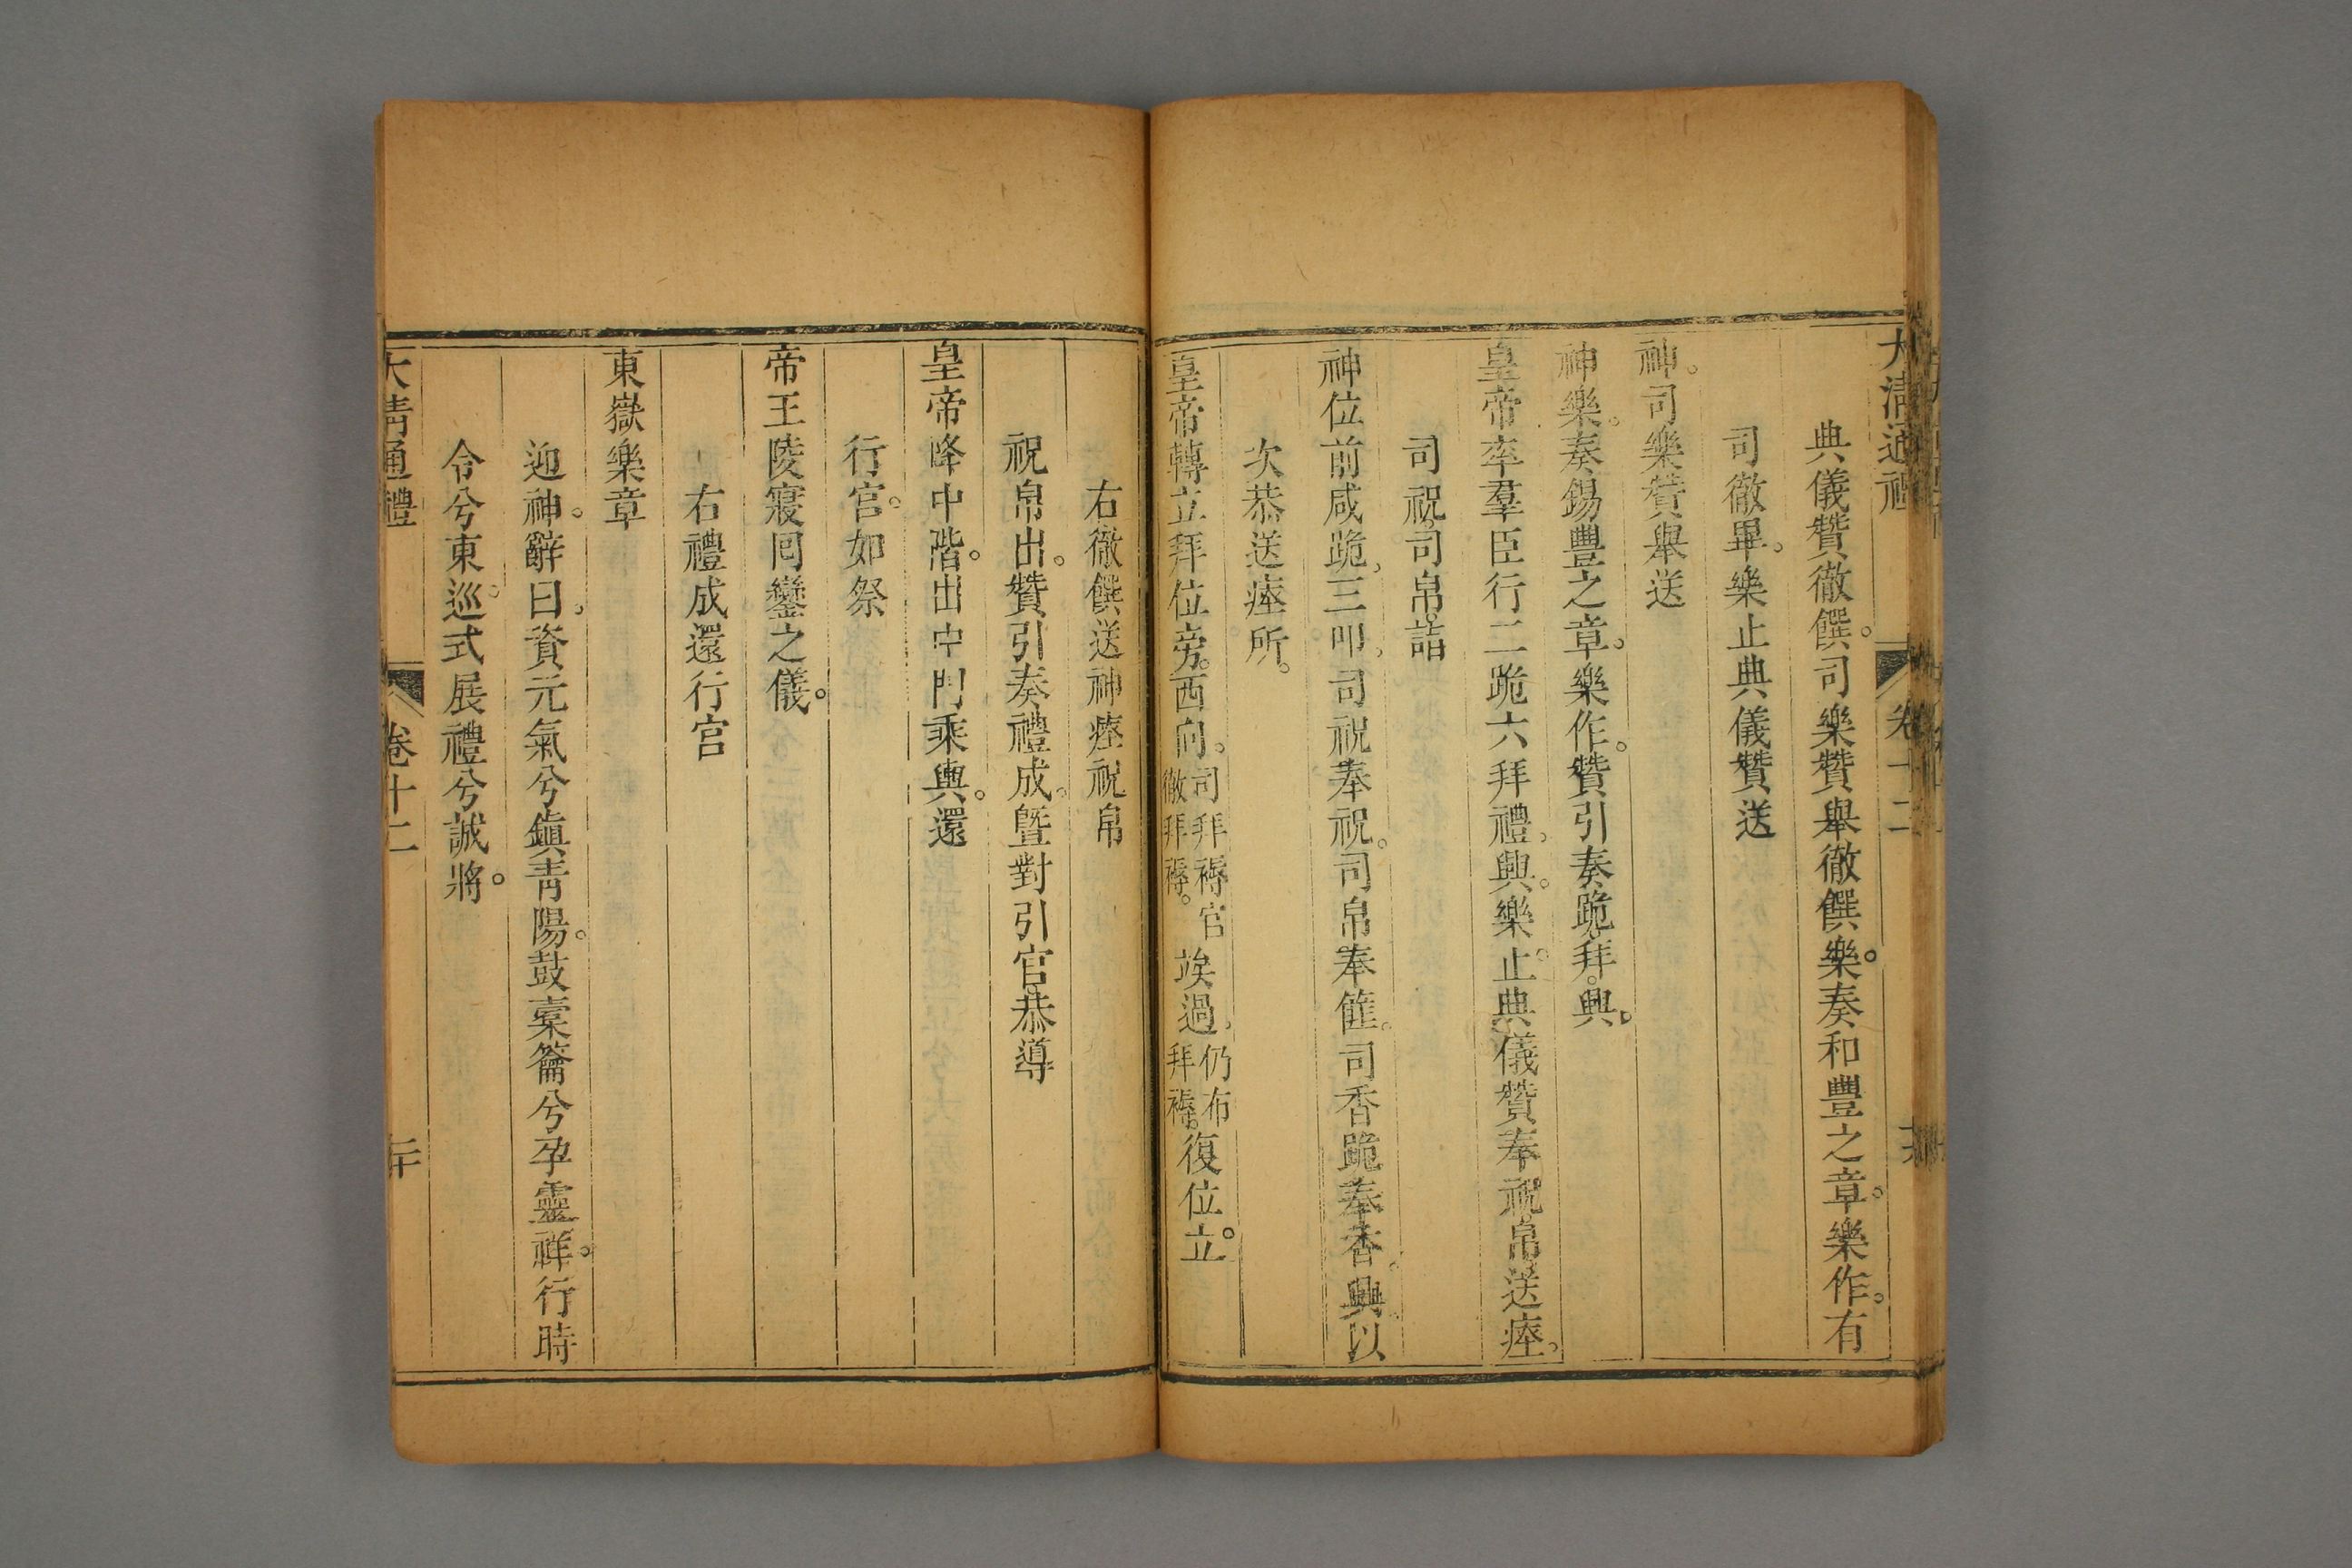 大清通禮 卷十二
典儀贊徹饌。司樂贊舉徹饌樂。奏和豐之章。樂作。有
司徹畢。樂止典儀贊送
神。司樂贊舉送
神樂。奏錫豐之章。樂作。贊引奏跪。拜。興。
皇帝率羣臣行二跪六拜禮。興。樂止。典儀贊奉祝。帛。送瘞。
司祝。司帛。詣
神位前咸跪。三叩。司祝奉祝。司帛奉篚。司香跪奉香。興以
次恭送瘞所。
皇帝轉立拜位旁。西向。司拜褥官徹拜褥。竢過。仍布拜褥。復位立。
右徹饌送神瘞祝帛
祝帛出。贊引奏禮成。曁對引官恭導
皇帝降中階。出中門乘輿。還
行宫。如祭
帝王陵寢囘鑾之儀。
右禮成還行宫
東嶽樂章
迎神。辭曰。資元氣兮鎭靑陽。鼓橐籥兮孕靈祥。行時
令兮東巡。式展禮兮誠將。
大清通禮 卷十二